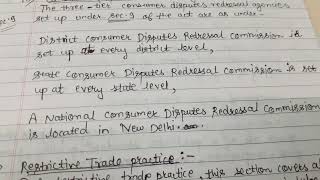 The three-tier consumer disputes redressal agencies
set up under sec.9 of the act are as under-
District consumer Disputes Redressal commission is
set up at every district level,
State Consumer Disputes Redressal Commission is set
up at every state level,
A National consumer Disputes Redressal Commission
is located in New Delhi.
Restrictive Trade practice:-
trade practice, this section covers a